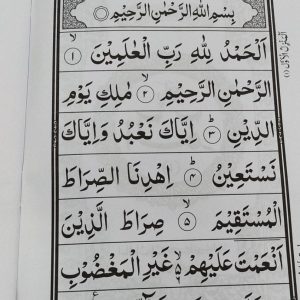 بِسْمِ اللّٰهِ الرَّحْمٰنِ الرَّحِيْمِ
اَلْحَمْدُ لِلّٰهِ رَبِّ الْعٰلَمِيْنَ ۙ‏﴿۱﴾
الرَّحْمٰنِ الرَّحِيْمِ ۙ‏﴿۲﴾ مٰلِكِ يَوْمِ
الدِّيْنِ ؕ‏﴿۳﴾ اِيَّاكَ نَعْبُدُ وَاِيَّاكَ
نَسْتَعِيْنُ ؕ‏﴿۴﴾ اِهْدِنَا الصِّرَاطَ
الْمُسْتَقِيْمَ ۙ‏﴿۵﴾ صِرَاطَ الَّذِيْنَ
اَنْعَمْتَ عَلَيْهِمْ ۙ۬ غَيْرِ الْمَغْضُوْبِ